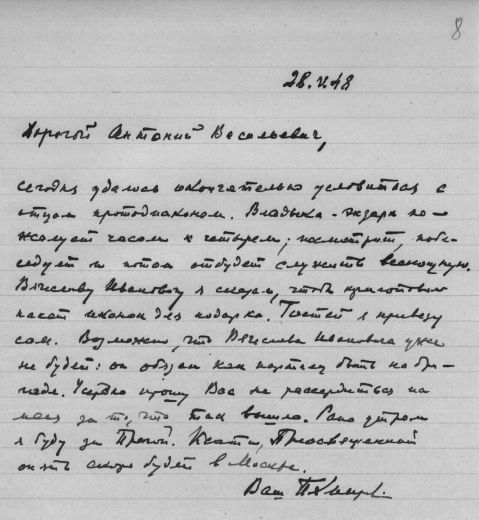 8
28.V.48
Дорогой Антоний Васильевич,
сегодня удалось окончательно условиться с
отцом протодиаконом. Владыка-экзарх по-
жалует часам к четырем; посмотрит, побе-
седует и потом отбудет служить всенощную.
Вячеславу Ивановичу я сказал, чтобы приготовил
насчет иконы для подарка. Гостей я привезу
сам. Возможно, что Вячеслава Ивановича уже
не будет: он обязан как партиец быть на бри-
гаде. Усердно прошу Вас не рассердиться на
меня за то, что так вышло. Рано утром
я буду за Прагой. Кстати, Преосвященный
опять скоро будет в Москве.
Ваш